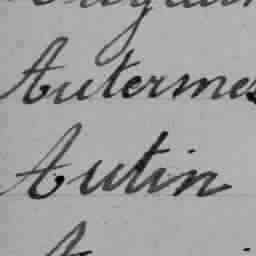 Autermes
Autin